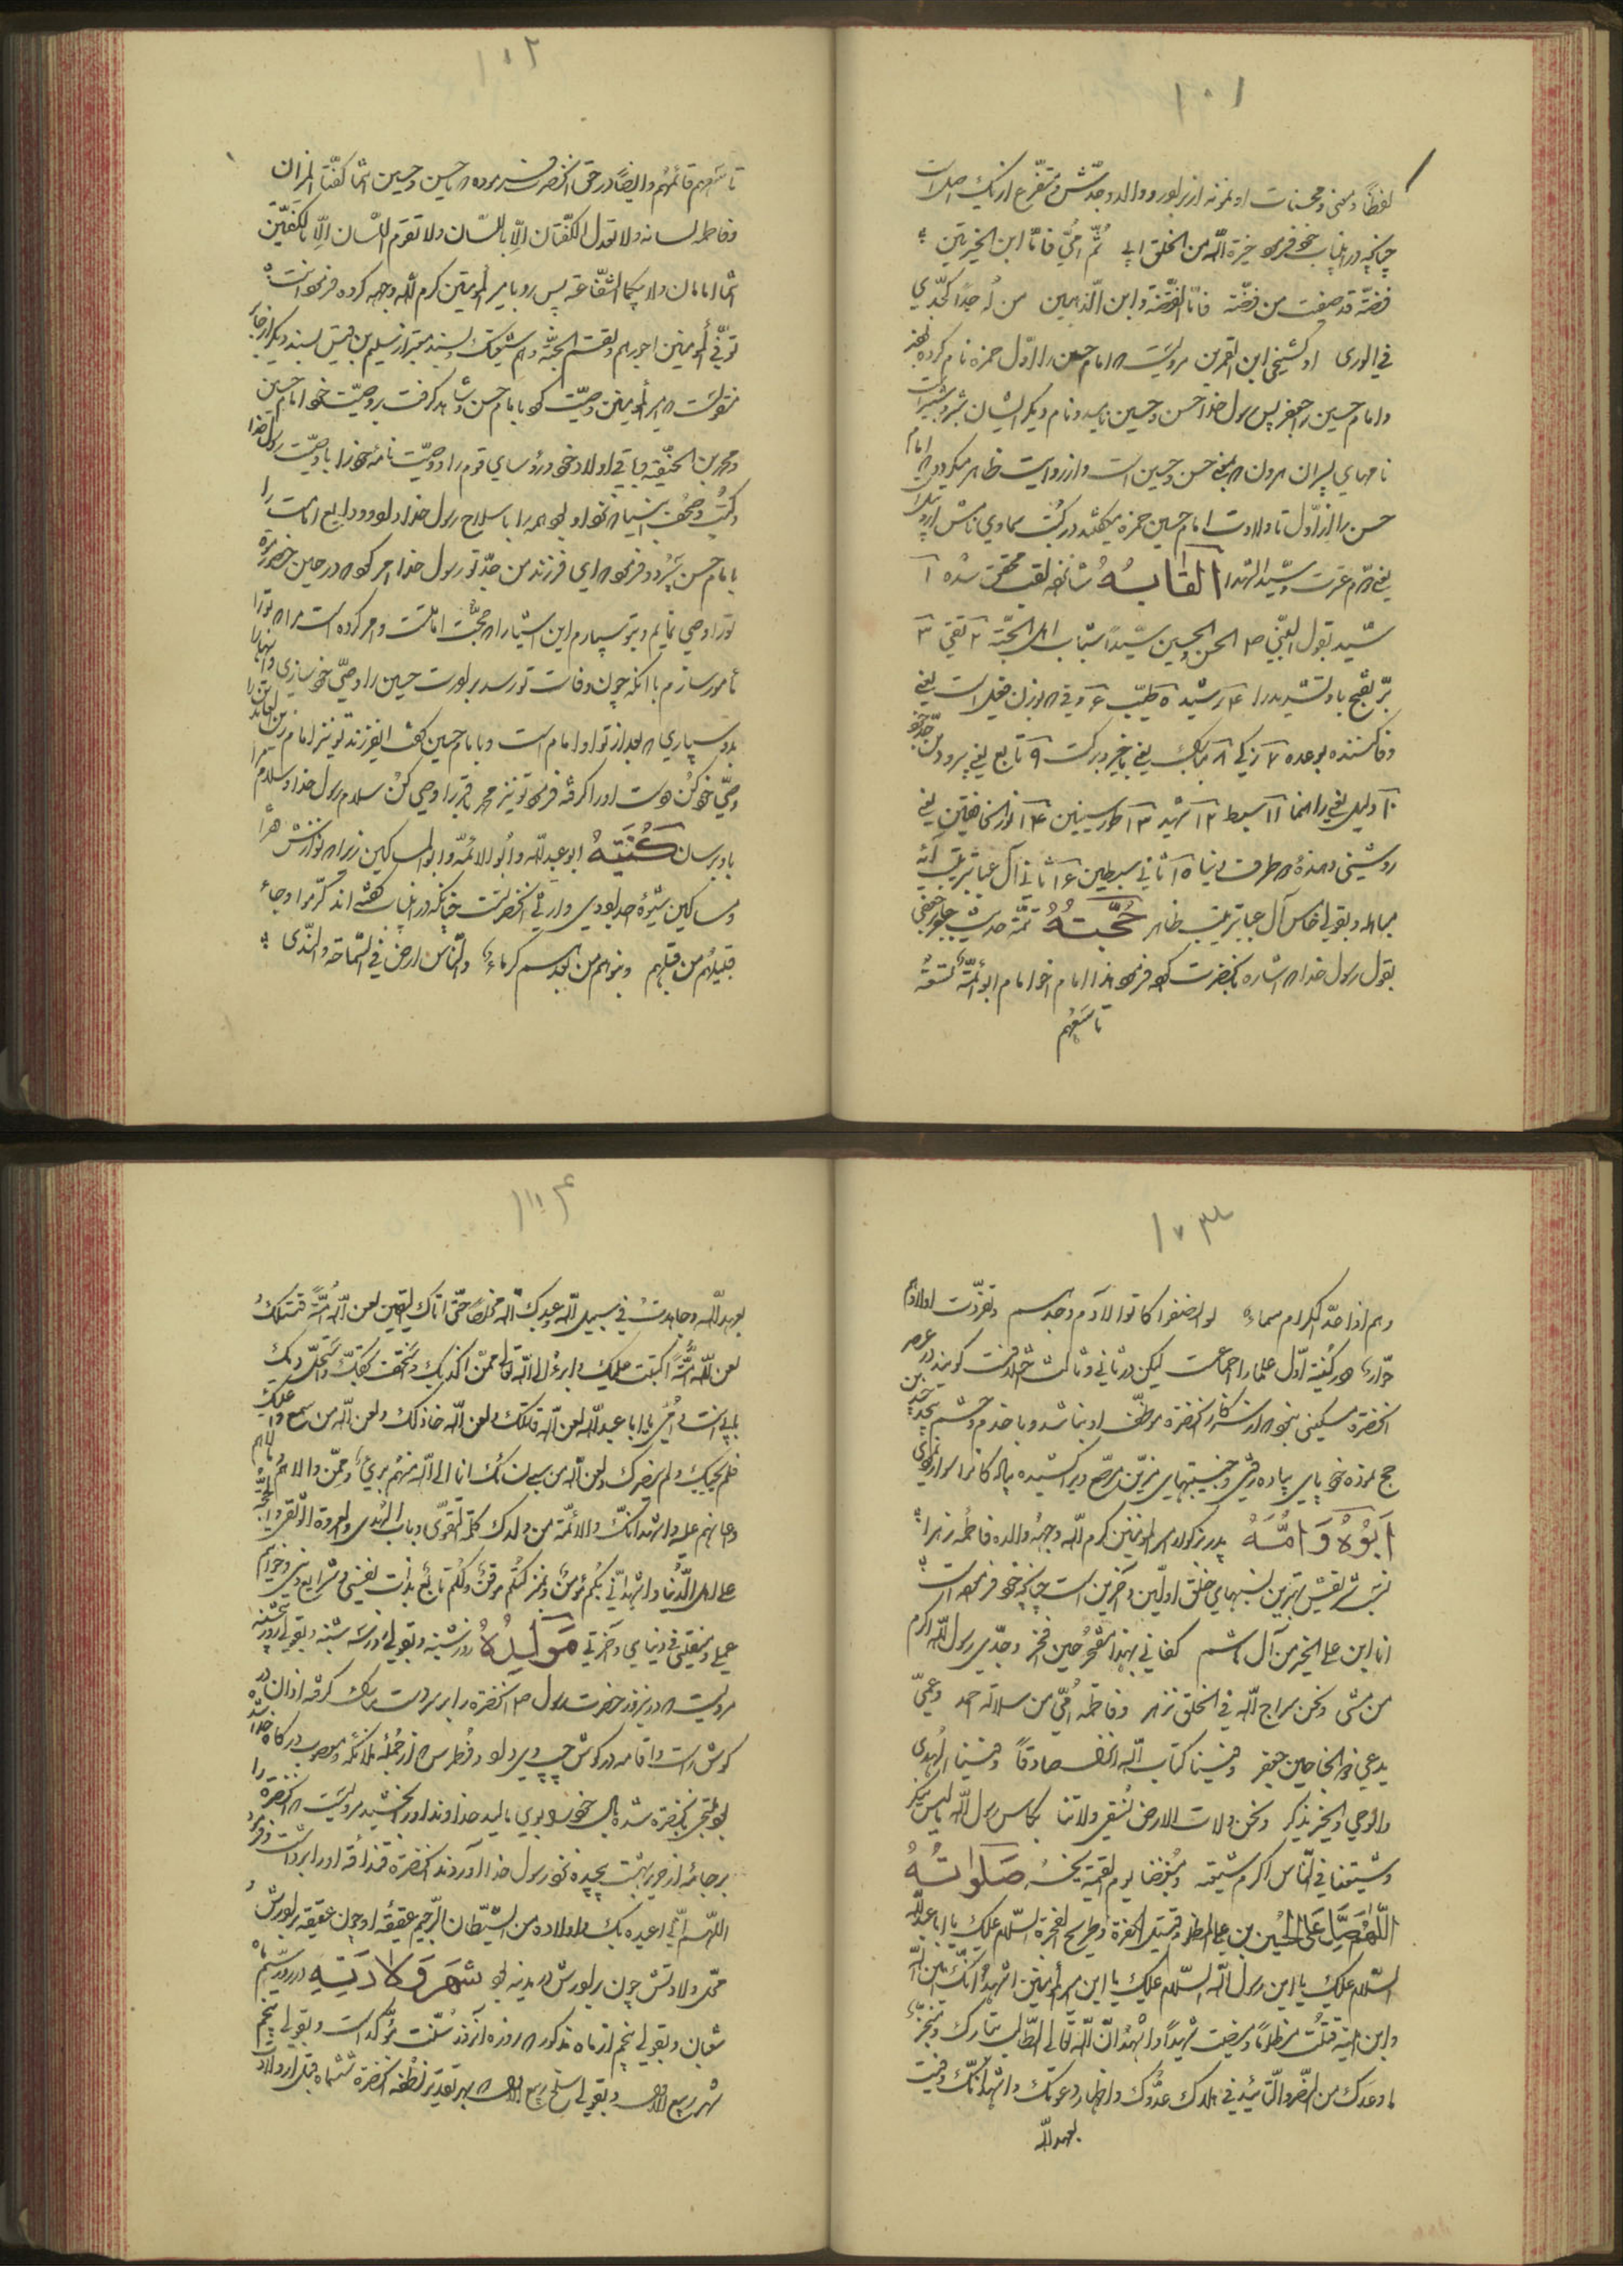 ١٠١
لفظاً ومعنى ومحسنات او نمونه از بزرگوار و والد وجدّش ومتفرّع از نیک اصلست
چنانچه در اینباب خود فرموده خیرة اللّه من الخلق ابی ثُمّ امّي فانّا ابن الخیرتین
فضّة قد صیغت من فضّة فانا الفضّة وابن الذّهبین من له جدّ کجدّي
في الوری او کشیخی ابن القمرین مرویست که امام حسن را اوّل حمزه نام کرده
وامام حسین را جعفر پس رسول خدا حسن وحسین نامید ونام دیگر ایشان شبّر وشبیر است
نامهای پسران هرون که بمعنی حسن وحسین است وازین روایت ظاهر میگردد که امام
حسن را از اوّل تا ولادت امام حسین حمزه میگفتند در کتب سماوی نامش
یعنی محترم عترت وسیّد الشهدا القابهُ شانزده لقب محقق شده ١
سیّد بقول النّبي ص الحسن والحسین سیّدا شباب اهل الجنّة ٢ تقي ٣
برّ بفتح با وتشدید را ٤ رشید ٥ طیّب ٦ وفي که بوزن فعیل است یعنی
وفا کننده بوعده ٧ زکي ٨ مبارک یعنی با خیر وبرکت ٩ تابع یعنی پیرو دین جدّ خود
١٠ دلیل یعنی راهنما ١١ سبط ١٢ شهید ١٣ طور سینین ١٤ نور الخافقین یعنی
روشنی دهندهٔ دو طرف دنیا ١٥ ثاني سبطین ١٦ ثاني آل عبا بترتیب آیهٔ
مباهله وبقولی خامس آل عبا بترتیب ظاهر حُجَّتهُ تتمّه حدیث جابر جعفی
بقول رسول خدا که اشاره بآنحضرت کرده فرموده هذا امام اخو امام ابو ائمّة تسعة
تاسعهم
١٠٢
تاسعهم قائمهُم وایضاً در حق آنحضرت فرموده که یا حسن وحسین انتما کفّتا المیزان
وفاطمه لسانه ولا تعدل الکفّتان الّا باللّسان ولا تقوم اللّسان الّا بالکفّتین
انتما امامان ولامّکما الشّفاعة پس رو بامیر المؤمنین کرم اللّه وجهه کرده فرمود انت
توفّي المؤمنین اجورهم وتقسم الجنّة واهل شیعتک وبسند معتبر از سلیم بن قیس بسند دیگر از جابر
منقولست که امیر المؤمنین وصیّت کرد بامام حسن وشاهد گرفت بر وصیّت خود امام حسین
ومحمد بن الحنفیّه وباقي اولاد خود ورؤسای قوم را ووصیّت نامهٔ خود را با وصیّت رسول خدا
وکتب وصحف انبیا که نزد او بود همه را با سلاح رسول خدا ودایع امامت را
بامام حسن سپرد وفرمود که ای فرزند من جدّ تو رسول خدا امر کرد که در حین
تورا وصي نمایم وبتو سپارم این اشیا را که حجّت امامتست وامر کرده است مرا که تورا
مأمور سازم با آنکه چون وفات تو رسد برادرت حسین را وصيّ خود سازی واینها را
بدو سپاری که بعد از تو او امام است وبامام حسین گفت ایفرزند تو نیز امام زین العابدین را
وصيّ خود کن دست او را گرفته فرمود تو نیز محمد باقر را وصي کن سلام رسول خدا وسلام مرا
باو برسان کُنیتهُ ابو عبد اللّه وابو الائمّه وابو المساکین زیرا که نوازش فقرا
ومساکین شیوهٔ جد بودی وارثی آنحضرتست چنانکه در اینباب گفته اند کرّموا وجاء
قبیلهُم من قبلهم وبنوهم من بعدهم کرماء والنّاس ارض في السّماحة والنّدی
١٠٣
وهم اذا عدّ الکرام سماء لو انصفوا کانوا لآدم وحدهم وتفرّدت اولاد
حوّاء در کنیهٔ اوّل علما را اجماعست لیکن در ثاني وثالث خلافست گویند در عصر
آنحضرت مسکینی نبود که از شکرانهٔ آنحضرت موظّف او نباشد وبا خدم وحشم بیست وپنج
حج نموده خود پیاي پیاده رفتی وجنیبتهای مزیّن مرصّع وبر کشیده پیادگانرا سوار نمودی
اَبوُهُ وَ اُمُّهُ پدر بزرگوارش امیر المؤمنین کرم اللّه وجههُ والده فاطمهٔ زهرا
نسب شریفش بهترین نسبهای خلق اوّلین وآخرین است چنانچه خود فرموده است
انا ابن علي الخیر من آل هاشم کفاني بهذا مفخر حین افخر وجدّي رسول اللّه اکرم
من مشی ونحن سراج اللّه في الخلق نزهر وفاطمة اُمّي من سلالة احمد وعمّي
یدعی ذو الجناحین جعفر وفینا کتاب اللّه انزل صادقاً وفینا الهُدی
والوحي والخیر یذکر ونحن ولات الارض نُسقي ولاتنا بکاس رسول اللّه مالیس ینکر
وشیعتنا في النّاس اکرم شیعة ومُبغضنا یوم القیمة یخسر صَلَواتهُ
اللّهُمّ صَلِّ عَلَی الحُسین بن علي المظلوم وقتیل الکفرة وطریح الفجرة السّلام علیک یا ابا عبد اللّه
السّلام علیک یا ابن رسول اللّه السّلام علیک یا ابن امیر المؤمنین اشهد انّک امین اللّه
وابن امینه قتلت مظلوماً ومضیت شهیداً واشهدُ انّ اللّه تعالی الطّالب بثارک ومنجز
ما وعدک من النّصر والتّائید في هلاک عدوّک واظهار دعوتک واشهد انّک وفیت
بعهد اللّه
١٠٤
بعهد اللّه وجاهدت في سبیل اللّه وعبدت اللّه مخلصاً حتّی اتاک الیقین لعن اللّه امّةً قتلتک
لعن اللّه امّةً البّت علیک وابرءُ الی اللّه تعالی ممّن اکذبک واستخفّ بحقّک واستحلّ دمک
بابي انت وامّي یا ابا عبد اللّه لعن اللّه قاتلک ولعن اللّه خاذلک ولعن اللّه من سمع واعیتک
فلم یجبک ولم ینصرک ولعن اللّه من سبی نسائک انا الی اللّه منهُم بريءٌ وممّن والاهم
وعانهم علیه واشهد انّک والائمّة من ولدک کلمة التّقوی وباب الهُدی والعروة الوثقی والحجّة
علی اهل الدُّنیا واشهد انّي بکُم مؤمنٌ وبمنزلتکُم موقنٌ ولکُم تابعٌ بذات نفسي وشرایع دیني وخواتیم
عملي ومنقلبي في دنیاي وآخرتي مَولِدُهُ روز شنبه وبقولی روز سه شنبه وبقولی روز پنجشنبه
مرویست که در نیروز حضرت رسول ص آنحضرت را بر سر دست مبارک گرفته اذان در
گوش راست واقامه در گوش چپ وی دادند وفُطرس که از جملهٔ ملائکه ومغضوب درگاه خدا شده
بود ملتجی بآنحضرت شده بال خود را بوی مالید خداوند او را بخشید مرویست که آنحضرت را
بر جامه از حریر بهشت پیچیده نزد رسول خدا آوردند آنحضرت او را برداشت وفرمود
اللّهُمّ انّي اعیذه بک واولاده من الشّیطان الرّجیم عقیقهٔ او چون عقیقه برادرش
محلّ ولادتش چون برادرش مدینه بود شَهرِ وَلادَتِهِ در روز سیّم
شعبان وبقولی پنجم از ماه مذکور که روزه آنروز سُنّت مؤکّد است وبقولی پنجم
شهر ربیع الاوّل وبقولی سلخ ربیع الاوّل که بهر تقدیر نطفهٔ آنحضرت ششماه قبل از ولادت